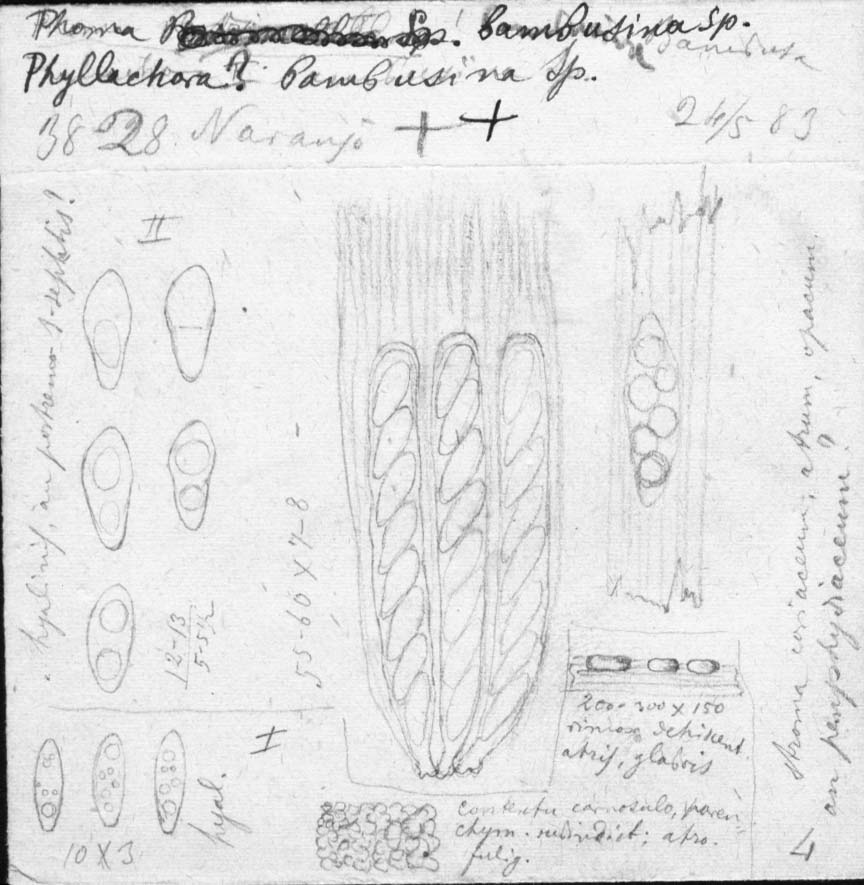 Phoma sp. bambusina sp.
Phyllachora? bambusina sp.
3828 Naranjo + + 24/5 83
II
hyalinis, an postremo 1-septatis?
12-13
5-5½
55-60 X 7-8
I
hyal.
10 X 3
200-300 x 150
rimose dehiscent.
atris, glabris
contextu carnosulo, paren-
chym. ; atro.
fulig.
stroma coriaceum, atrum, opacum.
an
4